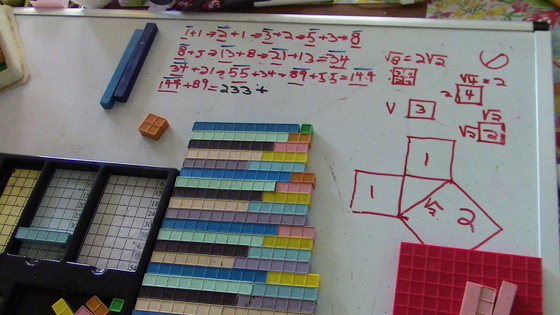 1+1→2+1→3+2→5+3→8
8+5→13+8→21+13=34
34+21→55+34→89+55=144
144+89=233+
√8=2√2
√4=2
4
√2
√2 2
3
1
1
√2 2